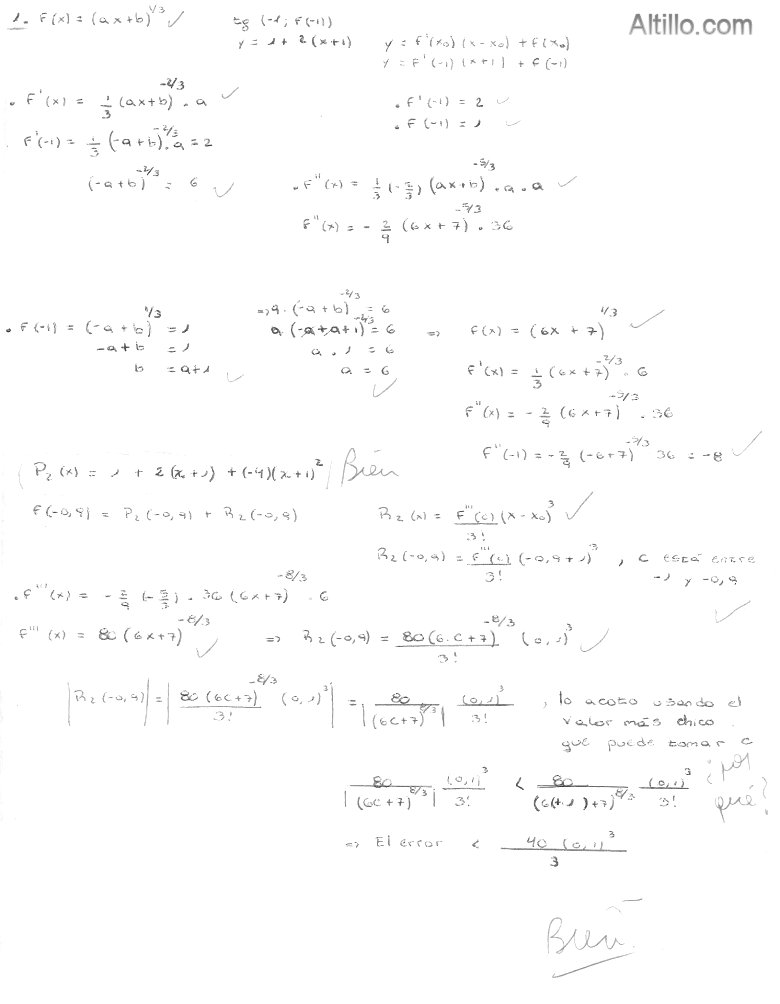 Altillo.com
1. F(x) = (ax+b)^1/3 ✓ tg (-1; F(-1))
y = 1 + 2(x+1) y = f'(x₀) (x-x₀) + f(x₀)
y = F'(-1) (x+1) + F(-1)
. F'(x) = 1/3 (ax+b)^-2/3 . a ✓ . F'(-1) = 2 ✓
. F(-1) = 1 ✓
F'(-1) = 1/3 (-a+b)^-2/3 . a = 2
(-a+b)^-2/3 = 6 ✓ . F''(x) = 1/3 (-2/3) (ax+b)^-5/3 . a . a ✓
F''(x) = - 2/9 (6x+7)^-5/3 . 36
. F(-1) = (-a+b)^1/3 = 1 => a . (-a+b)^-2/3 = 6
-a+b = 1 a (-a+a+1)^-2/3 = 6 => F(x) = (6x + 7)^1/3 ✓
b = a+1 ✓ a . 1 = 6
a = 6 ✓ F'(x) = 1/3 (6x+7)^-2/3 . 6
F''(x) = - 2/9 (6x+7)^-5/3 . 36
F''(-1) = - 2/9 (-6+7)^-5/3 36 = -8 ✓
P₂(x) = 1 + 2(x+1) + (-4)(x+1)² Bien
F(-0,9) = P₂(-0,9) + R₂(-0,9) R₂(x) = F'''(c)/3! (x-x₀)³ ✓
R₂(-0,9) = F'''(c)/3! (-0,9+1)³ , c está entre
-1 y -0,9 ✓
. F'''(x) = - 2/9 (-5/3) . 36 (6x+7)^-8/3 . 6
F'''(x) = 80 (6x+7)^-8/3 ✓ => R₂(-0,9) = 80(6.C+7)^-8/3/3! (0,1)³ ✓
|R₂(-0,9)| = |80(6C+7)^-8/3/3! (0,1)³| = 80/|(6C+7)^8/3| (0,1)³/3! , lo acoto usando el
valor más chico
que puede tomar c
80/|(6C+7)^8/3| (0,1)³/3! < 80/(6(-1)+7)^8/3 (0,1)³/3! ¿por qué?
=> El error < 40 (0,1)³/3
Bien